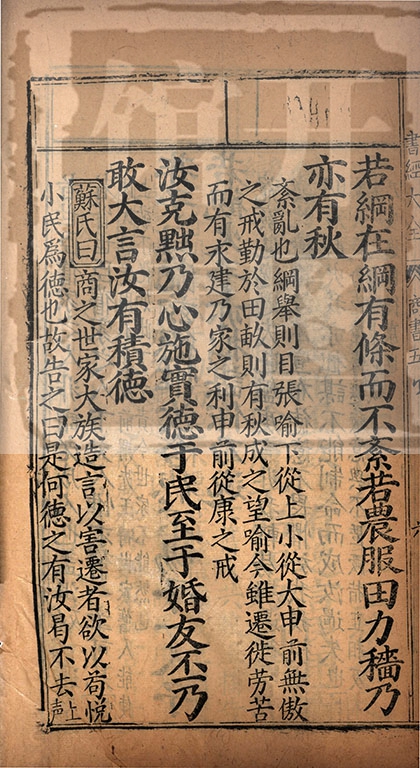 若網在綱有條而不紊若農服田力穡乃
亦有秋
紊亂也綱舉則目張喻下從上小從大申前無傲
之戒勤於田畝則有秋成之望喻今雖遷徙勞苦
而有永建乃家之利申前從康之戒
汝克黜乃心施實德于民至于婚友丕乃
敢大言汝有積德
蘇氏曰商之世家大族造言以害遷者欲以苟悅
小民爲德也故告之曰是何德之有汝曷不去上聲